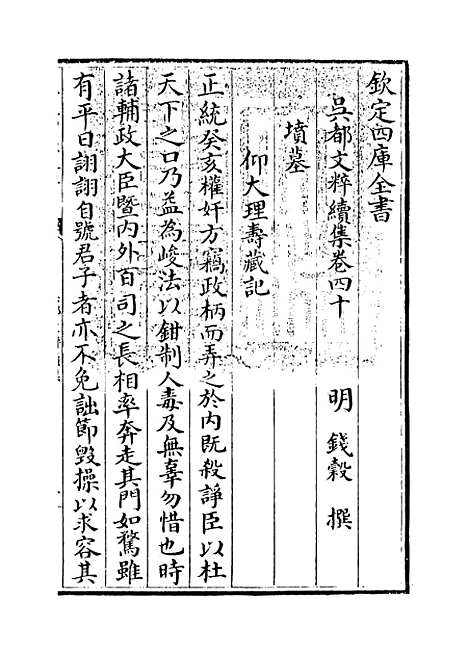 欽定四庫全書
吳都文粹續集卷四十
明 錢穀 撰
墳墓
仰大理壽藏記
正統癸亥權奸方竊政柄而弄之於內既殺諍臣以杜
天下之口乃益為峻法以鉗制人毒及無辜勿惜也時
諸輔政大臣暨內外百司之長相率奔走其門如騖雖
有平日詡詡自號君子者亦不免詘節毀操以求容其